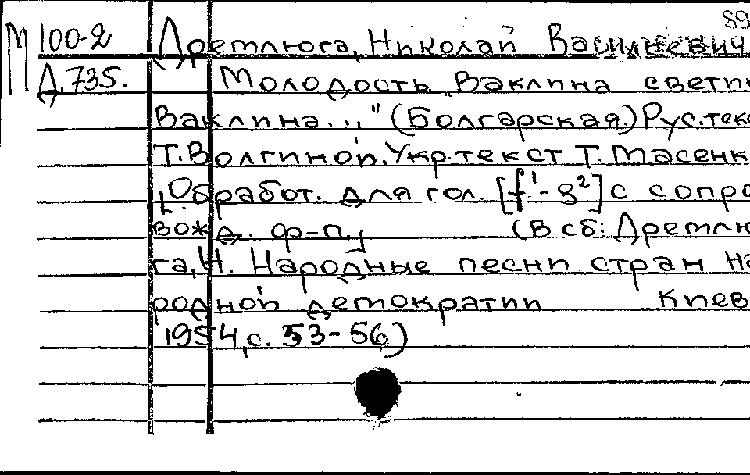 89
М 100-2 Дремлюга, Николай Васильевич
Д 735. Молодость Ваклина свети
Ваклина..." (Болгарская.) Рус.текс
Т.Волгиной. Укр.текст Т. Масенк
[Обработ. для гол. [f¹-g²] с сопро
вожд. ф-п] (В сб: Дремлю
га, Н. Народные песни стран на
родной демократии Киев
1954, с. 53-56)